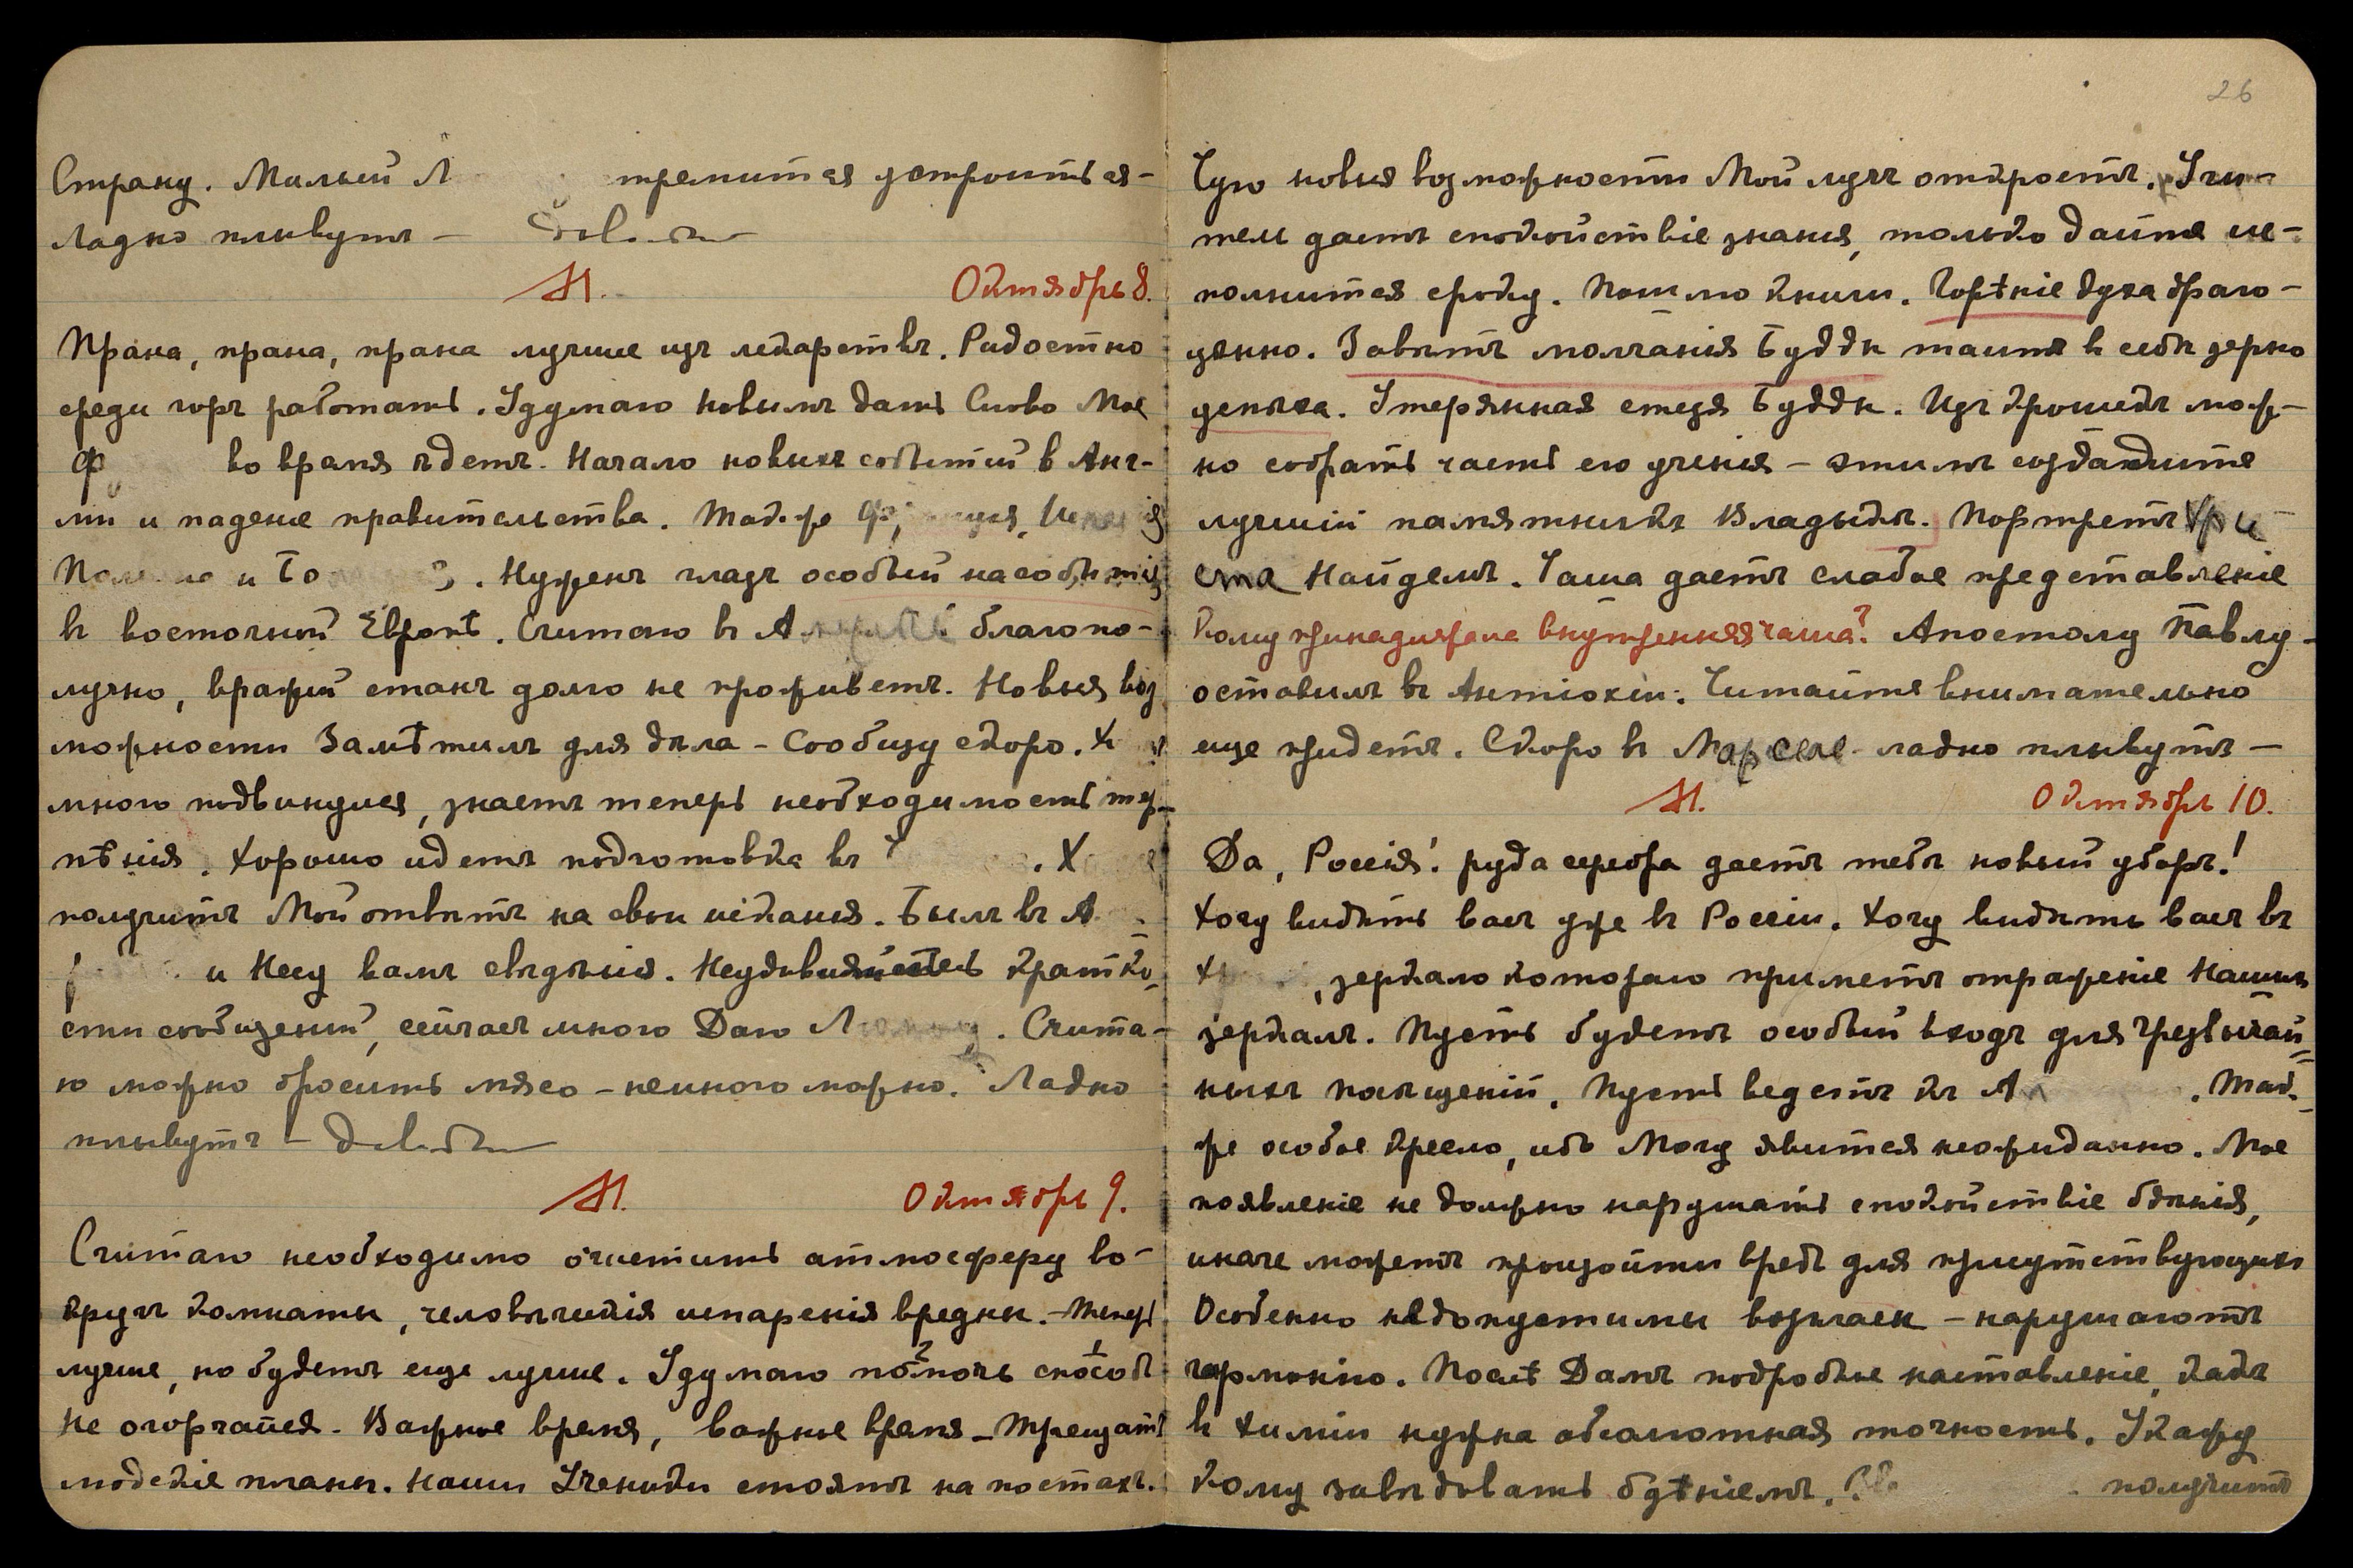 Страну. Милый Л тремится устроиться –
Ладно плывутъ –
М. Октябрь 8.
Прана, прана, прана лучше изъ лекарствъ. Радостно
среди горъ работать. Удумаю новымъ дать Слово Мое
Ф во время ѣдетъ. Начало новыхъ событий в Анг-
лiи и падение правительства. Также
и Бо . Нуженъ глазъ особый на события
въ восточной Европѣ. Считаю въ А благопо-
лучно, вражий станъ долго не проживетъ. Новыя воз
можности Замѣтилъ для дѣла – Сообщу скоро. Х
много подвинулся, знаетъ теперь необходимость тер-
пѣнiя. Хорошо идетъ подготовка въ . Х
получитъ Мой отвѣтъ на свои исканiя. Былъ въ А
и Несу вамъ свѣдѣнiя. Неудивляйтесь кратко-
сти сообщений, сейчасъ много Даю Л . Счита-
ю можно бросить мясо – немного можно. Ладно
плывутъ –
М. Октябрь 9.
Считаю необходимо очистить атмосферу во-
кругъ комнаты, человѣческiя испаренiя вредны. – Теперь
лучше, но будетъ еще лучше. Удумаю помочь способъ
Не огорчайся. Важное время, важное время – Трещатъ
людскiе планы. Наши Ученики стоятъ на постахъ.
26
Чую новыя возможности Мой лучъ откроетъ. Учи-
тель дастъ спокойствiе знанiя, только дайте ис-
полнится сроку. Пошлю книги. Горѣнiе духа драго-
цѣнно. Завѣтъ молчанiя Будды таитъ въ себѣ зерно
успѣха. Утерянная стезя Будды. Изъ крошекъ мож-
но собрать часть его ученiя – этимъ создадите
лучшiй памятникъ Владыкѣ. Портретъ Хри-
ста Найдемъ. Чаша даетъ слабое представленiе
Кому принадлежала внутренняя чаша? Апостолу Павлу –
оставилъ въ Антiохiи. Читайте внимательно
еще придетъ. Скоро въ Марселе – ладно плывутъ –
М. Октябрь 10.
Да, Россiя! руда серебра дастъ тебѣ новый уборъ!
Хочу видѣть васъ уже въ Россiи. Хочу видѣть васъ въ
Х , зеркало котораго приметъ отраженiе Нашихъ
зеркалъ. Пусть будетъ особый входъ для чрезвычай-
ныхъ посѣщенiй. Пусть ведетъ къ А . Так-
же особое кресло, ибо Могу явится неожиданно. Мое
появленiе не должно нарушать спокойствiе бдѣнiя,
иначе можетъ произойти вредъ для присутствующихъ
Особенно недопустимы возгласы – нарушаютъ
гармонiю. Послѣ Дамъ подробное наставленiе, какъ
въ химiи нужна абсолютная точность. Укажу
Кому завѣдовать бдѣнiемъ. получитъ